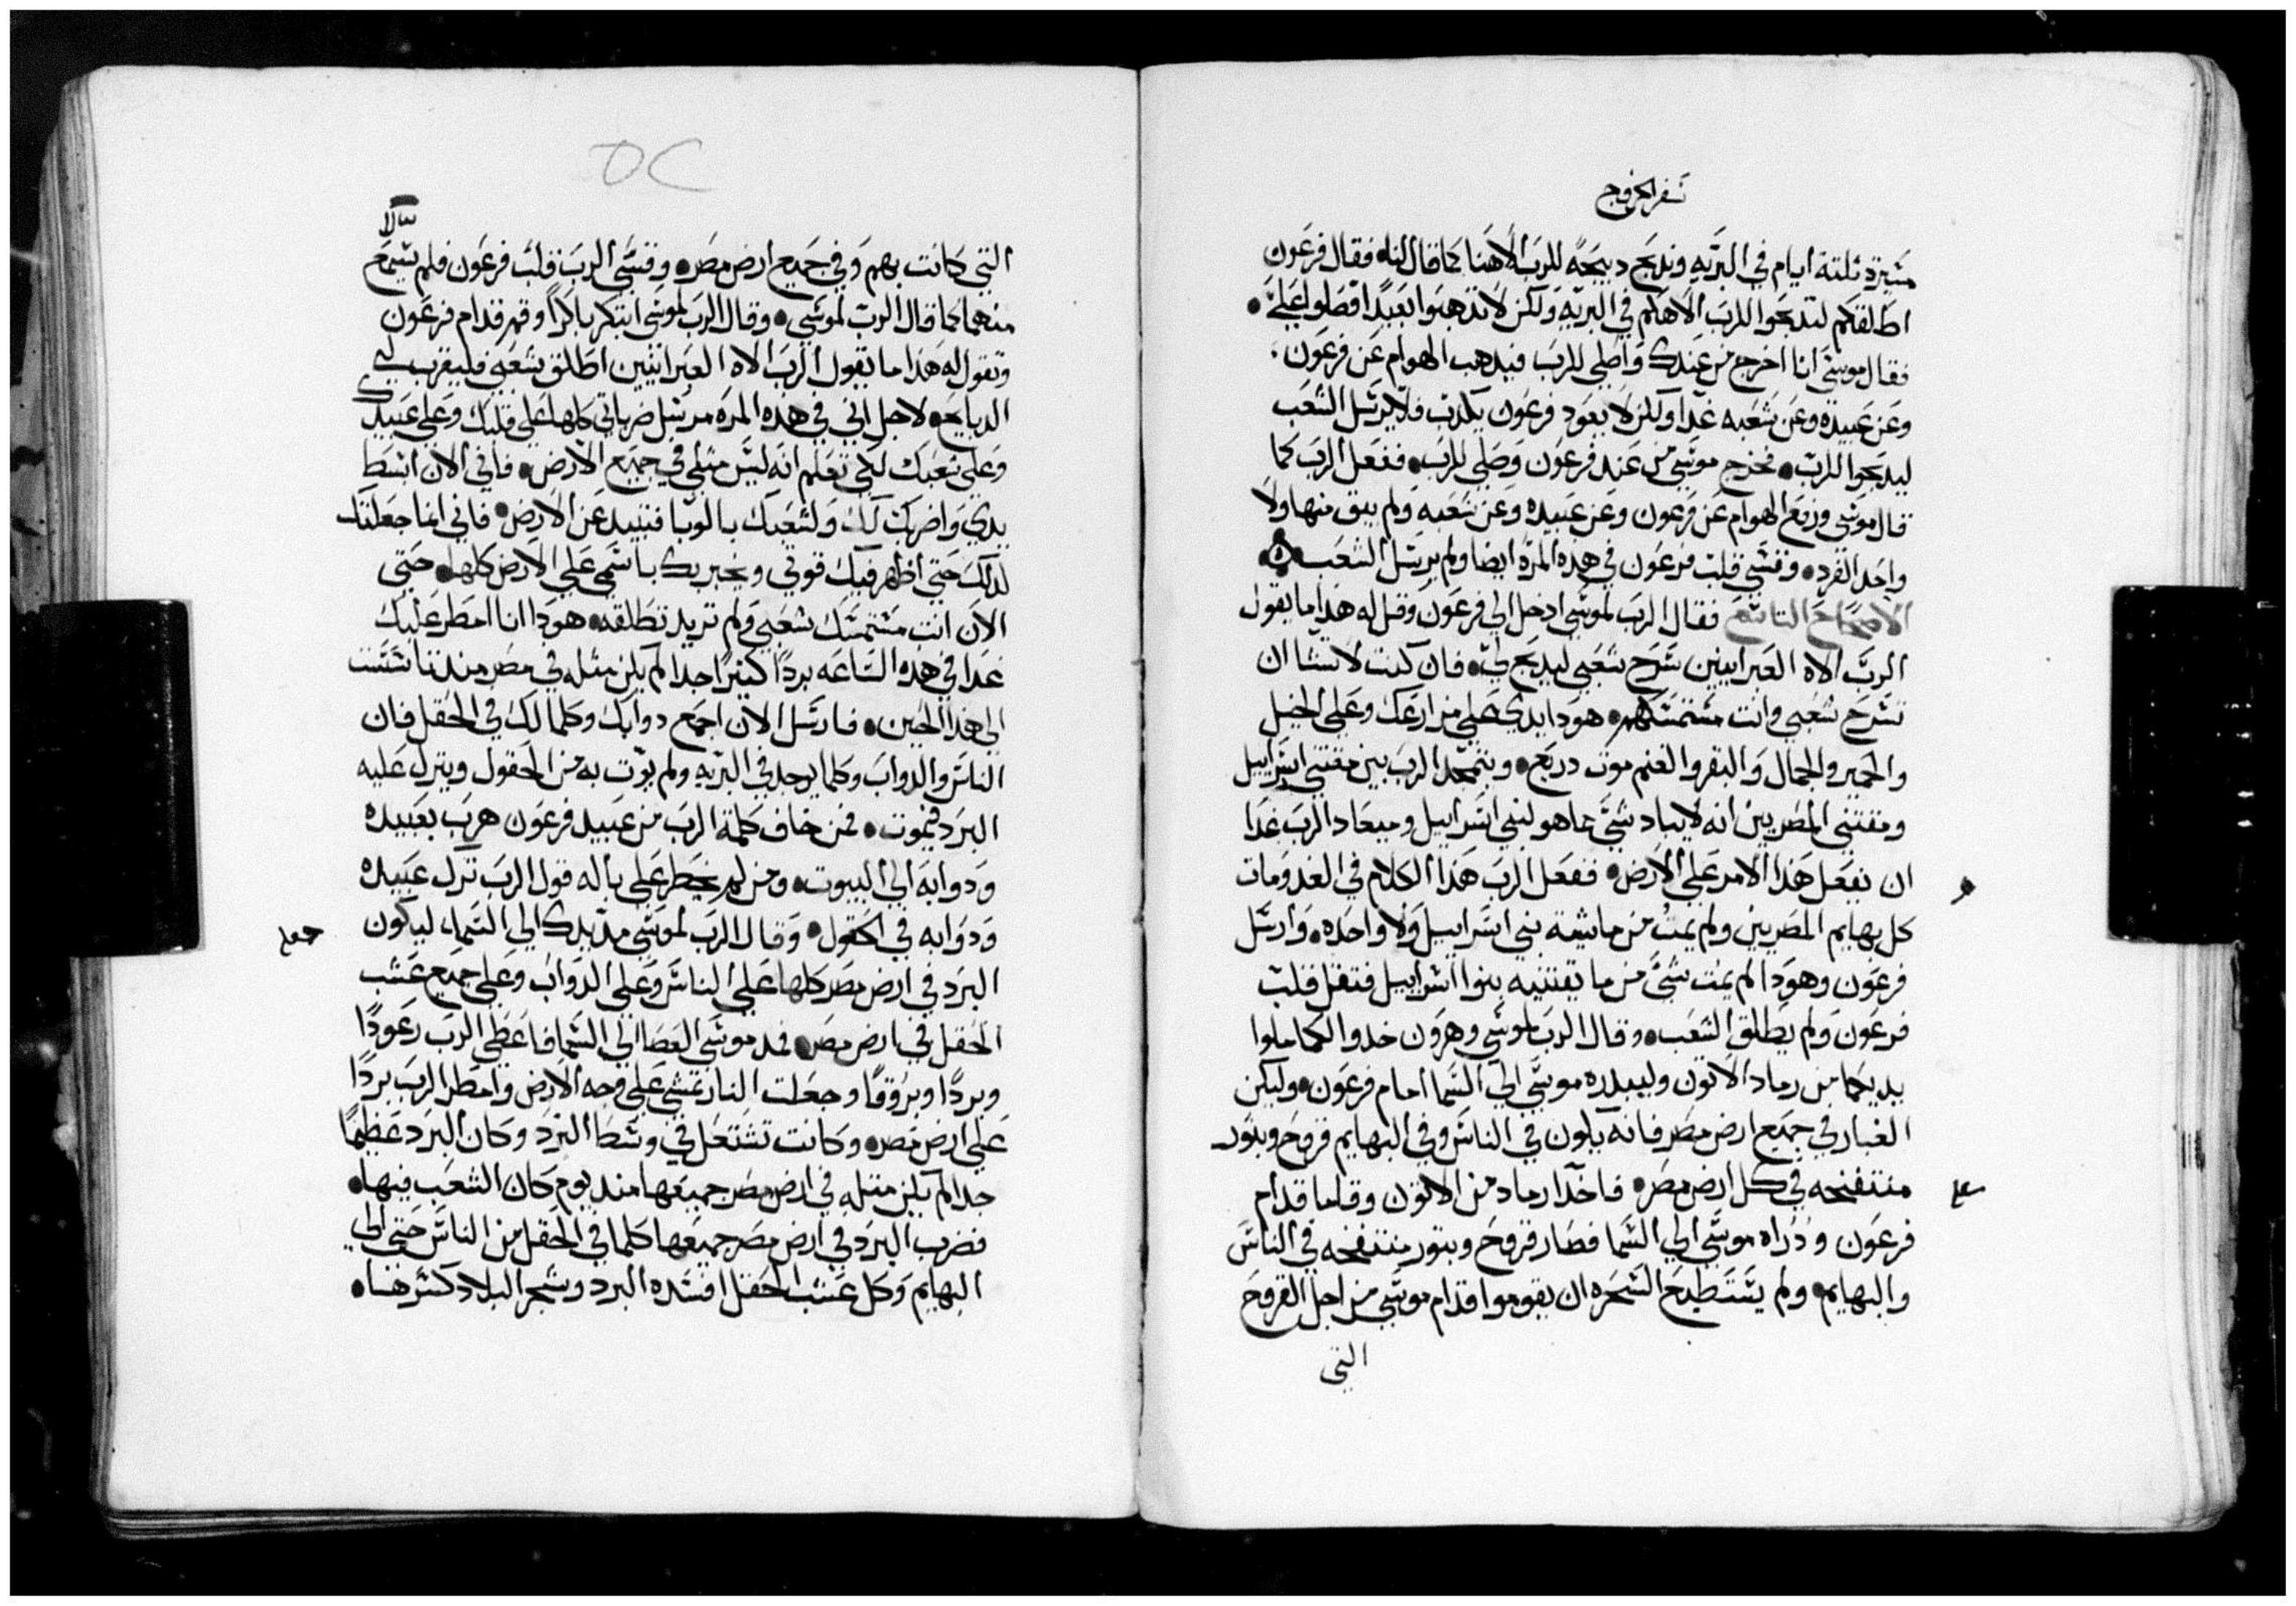 سفر الخروج
مسيرة ثلثة ايام في البريه وندبح دبيحه للرب الاهنا كما قال لنا، فقال فرعون
اطلقكم لتدبحوا للرب الاهكم في البريه ولكن لا تدهبوا بعيدًا فصلوا عليّ
فقال موسي انا اخرج من عندك واصلي للرب فيدهب الهوام عن فرعون
وعن عبيده وعن شعبه غدا ولكن لا يعود فرعون يكدب فلا يرسل الشعب
ليدبحوا للرب فخرج موسي من عند فرعون وصلي للرب ففعل الرب كما
قال موسي ورفع الهوام عن فرعون وعن عبيده وعن شعبه ولم يبق منها ولا
واحد الفرد وقسي قلب فرعون في هده المرة ايضا ولم يرسل الشعب
الاصحاح التاسع فقال الرب لموسي ادخل الي فرعون وقل له هدا ما يقول
الرب الاه العبرانيين سرح شعبي ليدبح لي فان كنت لا تشا ان
تسرح شعبي وانت متمسكهم هودا يدي علي مزارعك وعلي الخيل
والحمير والجمال والبقر والغنم موت دريع ويتمجد الرب بين مقتني اسراييل
ومقتني المصريين انه لا يباد شي مما هو لبني اسراييل وميعاد الرب غدا
ان يفعل هذا الامر علي الارض ففعل الرب هذا الكلام في الغد ومات
كل بهايم المصريين ولم يمت من ماشية بني اسراييل ولا واحده وارسل
فرعون وهودا لم يمت شي من ما يقتنيه بنوا اسراييل فتقل قلب
فرعون ولم يطلق الشعب وقال الرب لموسي وهرون خدوا لكما ملوا
يديكما من رماد الاتون وليبدره موسي الي السما امام فرعون وليكن
الغبار في جميع ارض مصر فانه يكون في الناس وفي البهايم قروح وبتور
منتفخه في كل ارض مصر فاخدا رماد من الاتون وقاما قدام
فرعون وذراه موسي الي السما فصار قروح وبتور منتفخه في الناس
والبهايم ولم يستطيع السحره ان يقوموا قدام موسي من اجل القروح
التي
التي كانت بهم وفي جميع ارض مصر وقسي الرب قلب فرعون فلم يسمع
منهما كما قال الرب لموسي وقال الرب لموسي ابتكر باكرًا وقم قدام فرعون
وتقول له هذا ما يقول الرب الاه العبرانيين اطلق شعبي فليقرب لي
الدبايح لاجل اني في هذه المره مرسل ضرباتي كلها علي قلبك وعلي عبيدك
وعلي شعبك لكي تعلم انه ليس متلي في جميع الارض فاني الان ابسط
يدي واضربك لك ولشعبك بالوبا فتبيد عن الارض فاني انما جعلتك
لدلك حتي اظهر فيك قوتي ويخبر بك باسمي علي الارض كلها حتي
الان انت متمسك شعبي ولم تريد تطلقه هودا انا امطر عليك
غدا في هده الساعه بردًا كثيرًا جدا لم يكن مثله في مصر مند تاسست
الي هذا الحين فارسل الان اجمع دوابك وكلما لك في الحقل فان
الناس والدواب وكلما يوجد في البريه ولم يوت به من الحقول وينزل عليه
البرد فيموت فمن خاف كلمة الرب من عبيد فرعون هرب بعبيده
ودوابه الي البيوت ومن لم يخطر علي باله قول الرب ترك عبيده
ودوابه في الحقول وقال الرب لموسي مد يدك الي السما، ليكون
البرد في ارض مصر كلها علي الناس وعلي الدواب وعلي جميع عشب
الحقل في ارض مصر فمد موسي العصا الي السما فاعطي الرب رعودًا
وبردًا وبروقًا وجعلت النار تمشي علي وجه الارض وامطر الرب بردًا
علي ارض مصر وكانت تشتعل في وسط البرد وكان البرد عظيمًا
جدا لم يكن متله في ارض مصر جميعها مند يوم كان الشعب فيها
فضرب البرد في ارض مصر جميعها كلما في الحقل من الناس حتي الي
البهايم وكل عشب الحقل افسده البرد وشجر البلاد كسرها